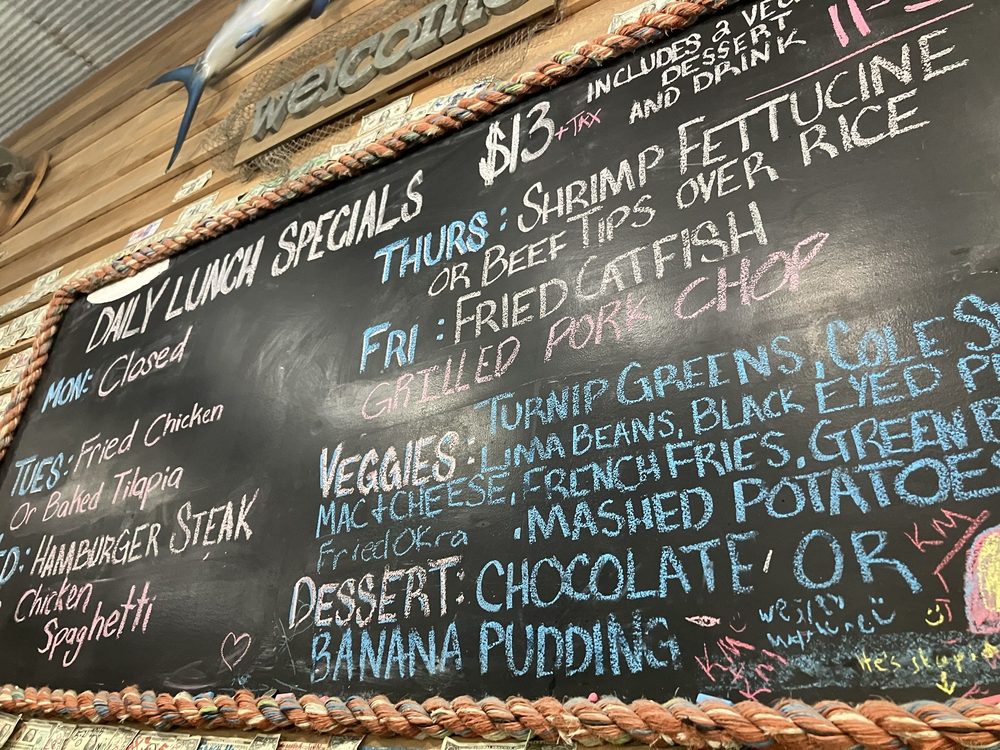 welcome
DAILY LUNCH SPECIALS
$13 +TAX
INCLUDES 2 VEG
DESSERT
AND DRINK
11-
MON: Closed
TUES: Fried Chicken
Or Baked Tilapia
ED: HAMBURGER STEAK
Chicken
Spaghetti
THURS: SHRIMP FETTUCINE
OR BEEF TIPS OVER RICE
FRI: FRIED CATFISH
GRILLED PORK CHOP
VEGGIES: TURNIP GREENS, COLE S
LIMA BEANS, BLACK EYED P
MAC+CHEESE, FRENCH FRIES, GREEN B
Fried Okra , MASHED POTATOES
DESSERT: CHOCOLATE, OR
BANANA PUDDING
KM
KM
He's stupid